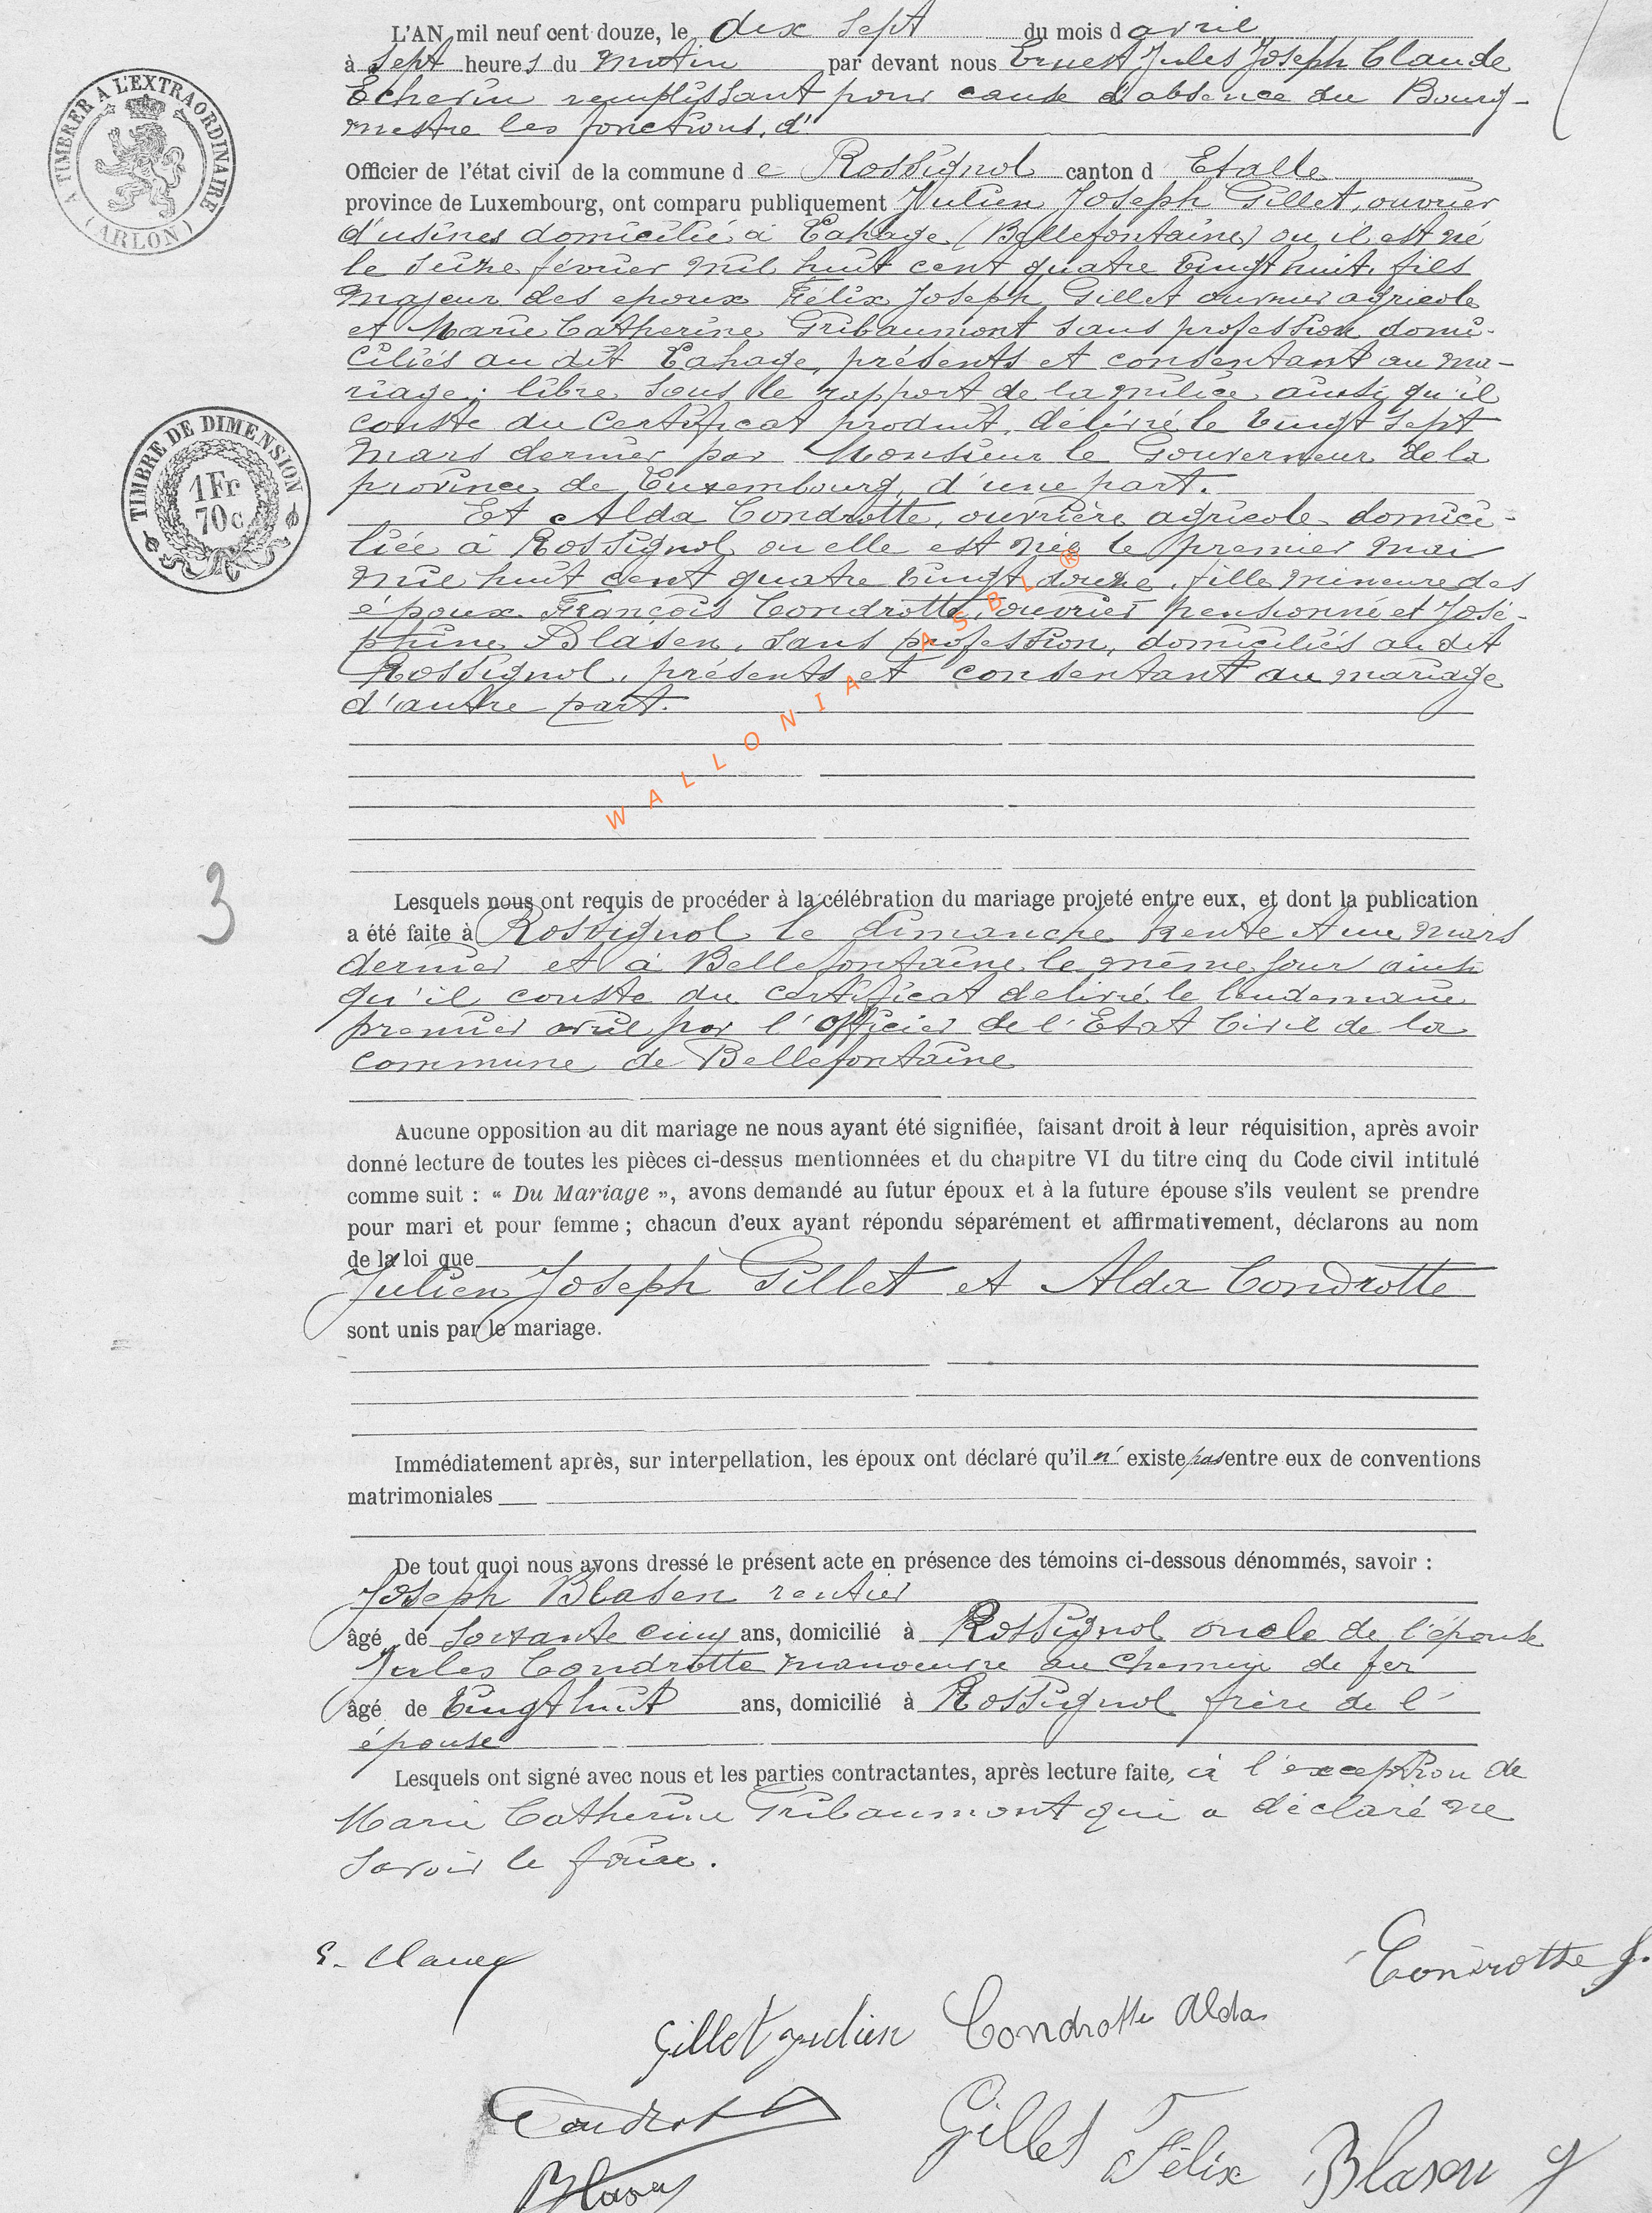 L'AN mil neuf cent douze, le dix sept du mois d avril
à sept heures du matin par devant nous Ernest Jules Joseph Claude
Echevin remplissant pour cause d'absence du Bourg-
mestre les fonctions, d'
Officier de l'état civil de la commune d e Rossignol canton d Etalle
province de Luxembourg, ont comparu publiquement Julien Joseph Gillet, ouvrier
d'usines domicilié à Lahage (Bellefontaine) ou il est né
le seize février mil huit cent quatre vingt huit, fils
majeur des epoux Félix Joseph Gillet ouvrier agricole
et Marie Catherine Gribaumont sans profession domi-
ciliés au dit Lahage, présents et consentant au ma-
riage; libre sous le rapport de la milice ainsi qu'il
conste du certificat produit, délivré le vingt sept
mars dernier par Monsieur le Gouverneur de la
province de Luxembourg, d'une part.
Et Alda Condrotte, ouvrière agricole domici-
liée à Rossignol ou elle est née le premier mai
mil huit cent quatre vingt douze, fille mineure des
époux François Condrotte, ouvrier pensionné et José-
phine Blasen, sans profession, domiciliés au dit
Rossignol, présents et consentant au mariage
d'autre part.
WALLONIA ASBL ®
A TIMBRER A L'EXTRAORDINAIRE
(ARLON)
TIMBRE DE DIMENSION
1 Fr
70 c
3
Lesquels nous ont requis de procéder à la célébration du mariage projeté entre eux, et dont la publication
a été faite à Rossignol le dimanche trente et un mars
dernier et à Bellefontaine le même jour ainsi
qu'il conste du certificat delivré le lendemain
premier avril par l'Officier de l'Etat Civil de la
commune de Bellefontaine
Aucune opposition au dit mariage ne nous ayant été signifiée, faisant droit à leur réquisition, après avoir
donné lecture de toutes les pièces ci-dessus mentionnées et du chapitre VI du titre cinq du Code civil intitulé
comme suit : « Du Mariage », avons demandé au futur époux et à la future épouse s'ils veulent se prendre
pour mari et pour femme ; chacun d'eux ayant répondu séparément et affirmativement, déclarons au nom
de la loi que
Julien Joseph Gillet et Alda Condrotte
sont unis par le mariage.
Immédiatement après, sur interpellation, les époux ont déclaré qu'il n' existe pas entre eux de conventions
matrimoniales
De tout quoi nous avons dressé le présent acte en présence des témoins ci-dessous dénommés, savoir :
Joseph Blasen rentier
âgé de soixante cinq ans, domicilié à Rossignol oncle de l'épouse
Jules Condrotte manoeuvre au chemin de fer
âgé de vingt huit ans, domicilié à Rossignol frère de l'
épouse
Lesquels ont signé avec nous et les parties contractantes, après lecture faite, à l'exception de
Marie Catherine Gribaumont qui a déclaré ne
savoir le faire.
E. Claude
Condrotte J.
Gillet Julien Condrotte Alda
Condrot
Gillet Félix Blasen J
Blasen